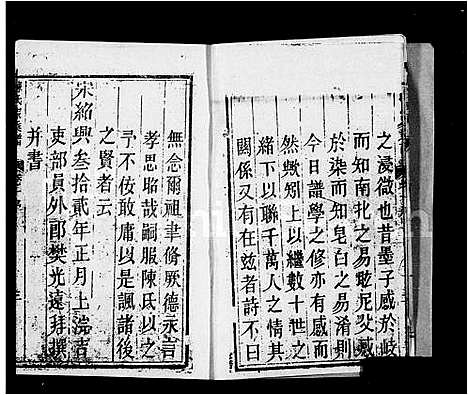 之浸微也昔墨子感於岐
而知南北之易眩泥父感
於染而知皂白之易淆則
今日譜學之修亦有感而
然歟矧上以繼數十世之
緒下以聯千萬人之情其
關係又有在玆者詩不曰
無念爾祖聿脩厥德永言
孝思昭哉嗣服陳氏以之
予不佞敢庸以是諷諸後
之賢者云
宋紹興叁拾貳年正月上浣吉
吏部員外郎樊光遠拜撰
并書